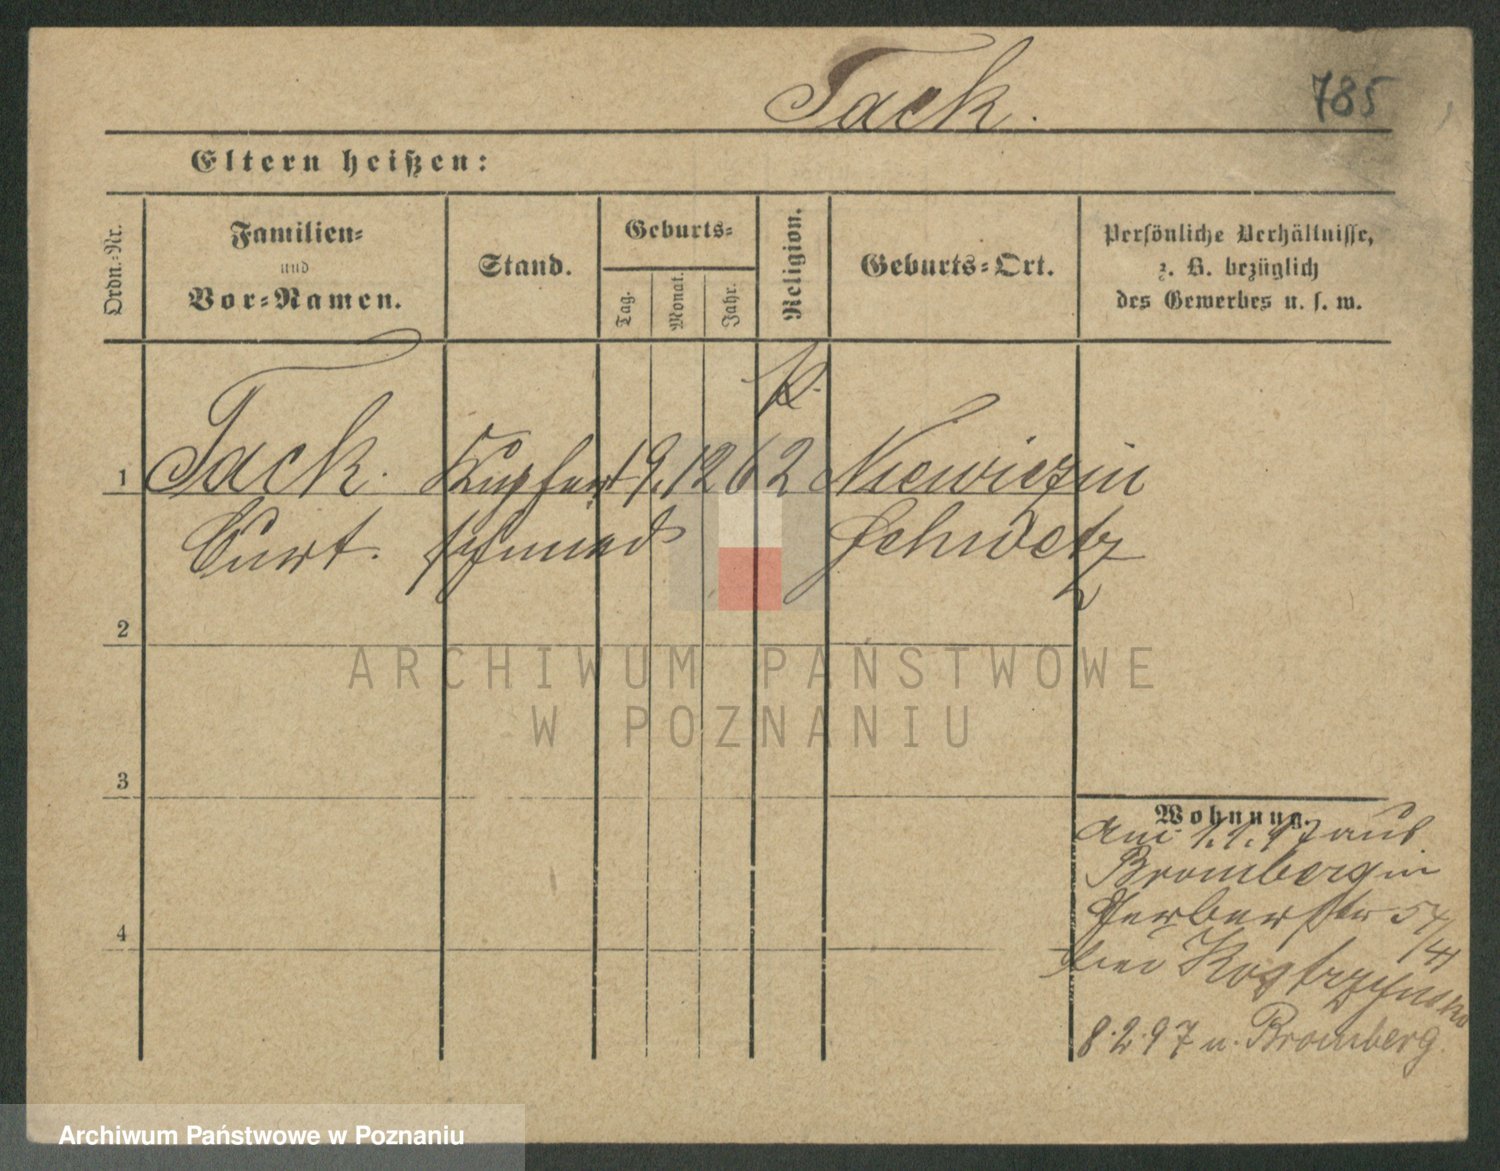 Tack.
785
Eltern heißen:
Ordn.-Nr.
Familien-
und
Vor-Namen.
Stand.
Geburts-
Tag.
Monat.
Jahr.
Religion.
Geburts-Ort.
Persönliche Verhältnisse,
z. B. bezüglich
des Gewerbes u. s. w.
k.
1 Tack. Kupfer 19. 12 62 Niewiezin
Curt. schmied Schwetz
2
ARCHIWUM PAŃSTWOWE
W POZNANIU
3
Wohnung.
Am 1.1.97 aus
Bromberg in
Gerberstr 54/41
bei
4
8.2.97 n. Bromberg.
Archiwum Państwowe w Poznaniu